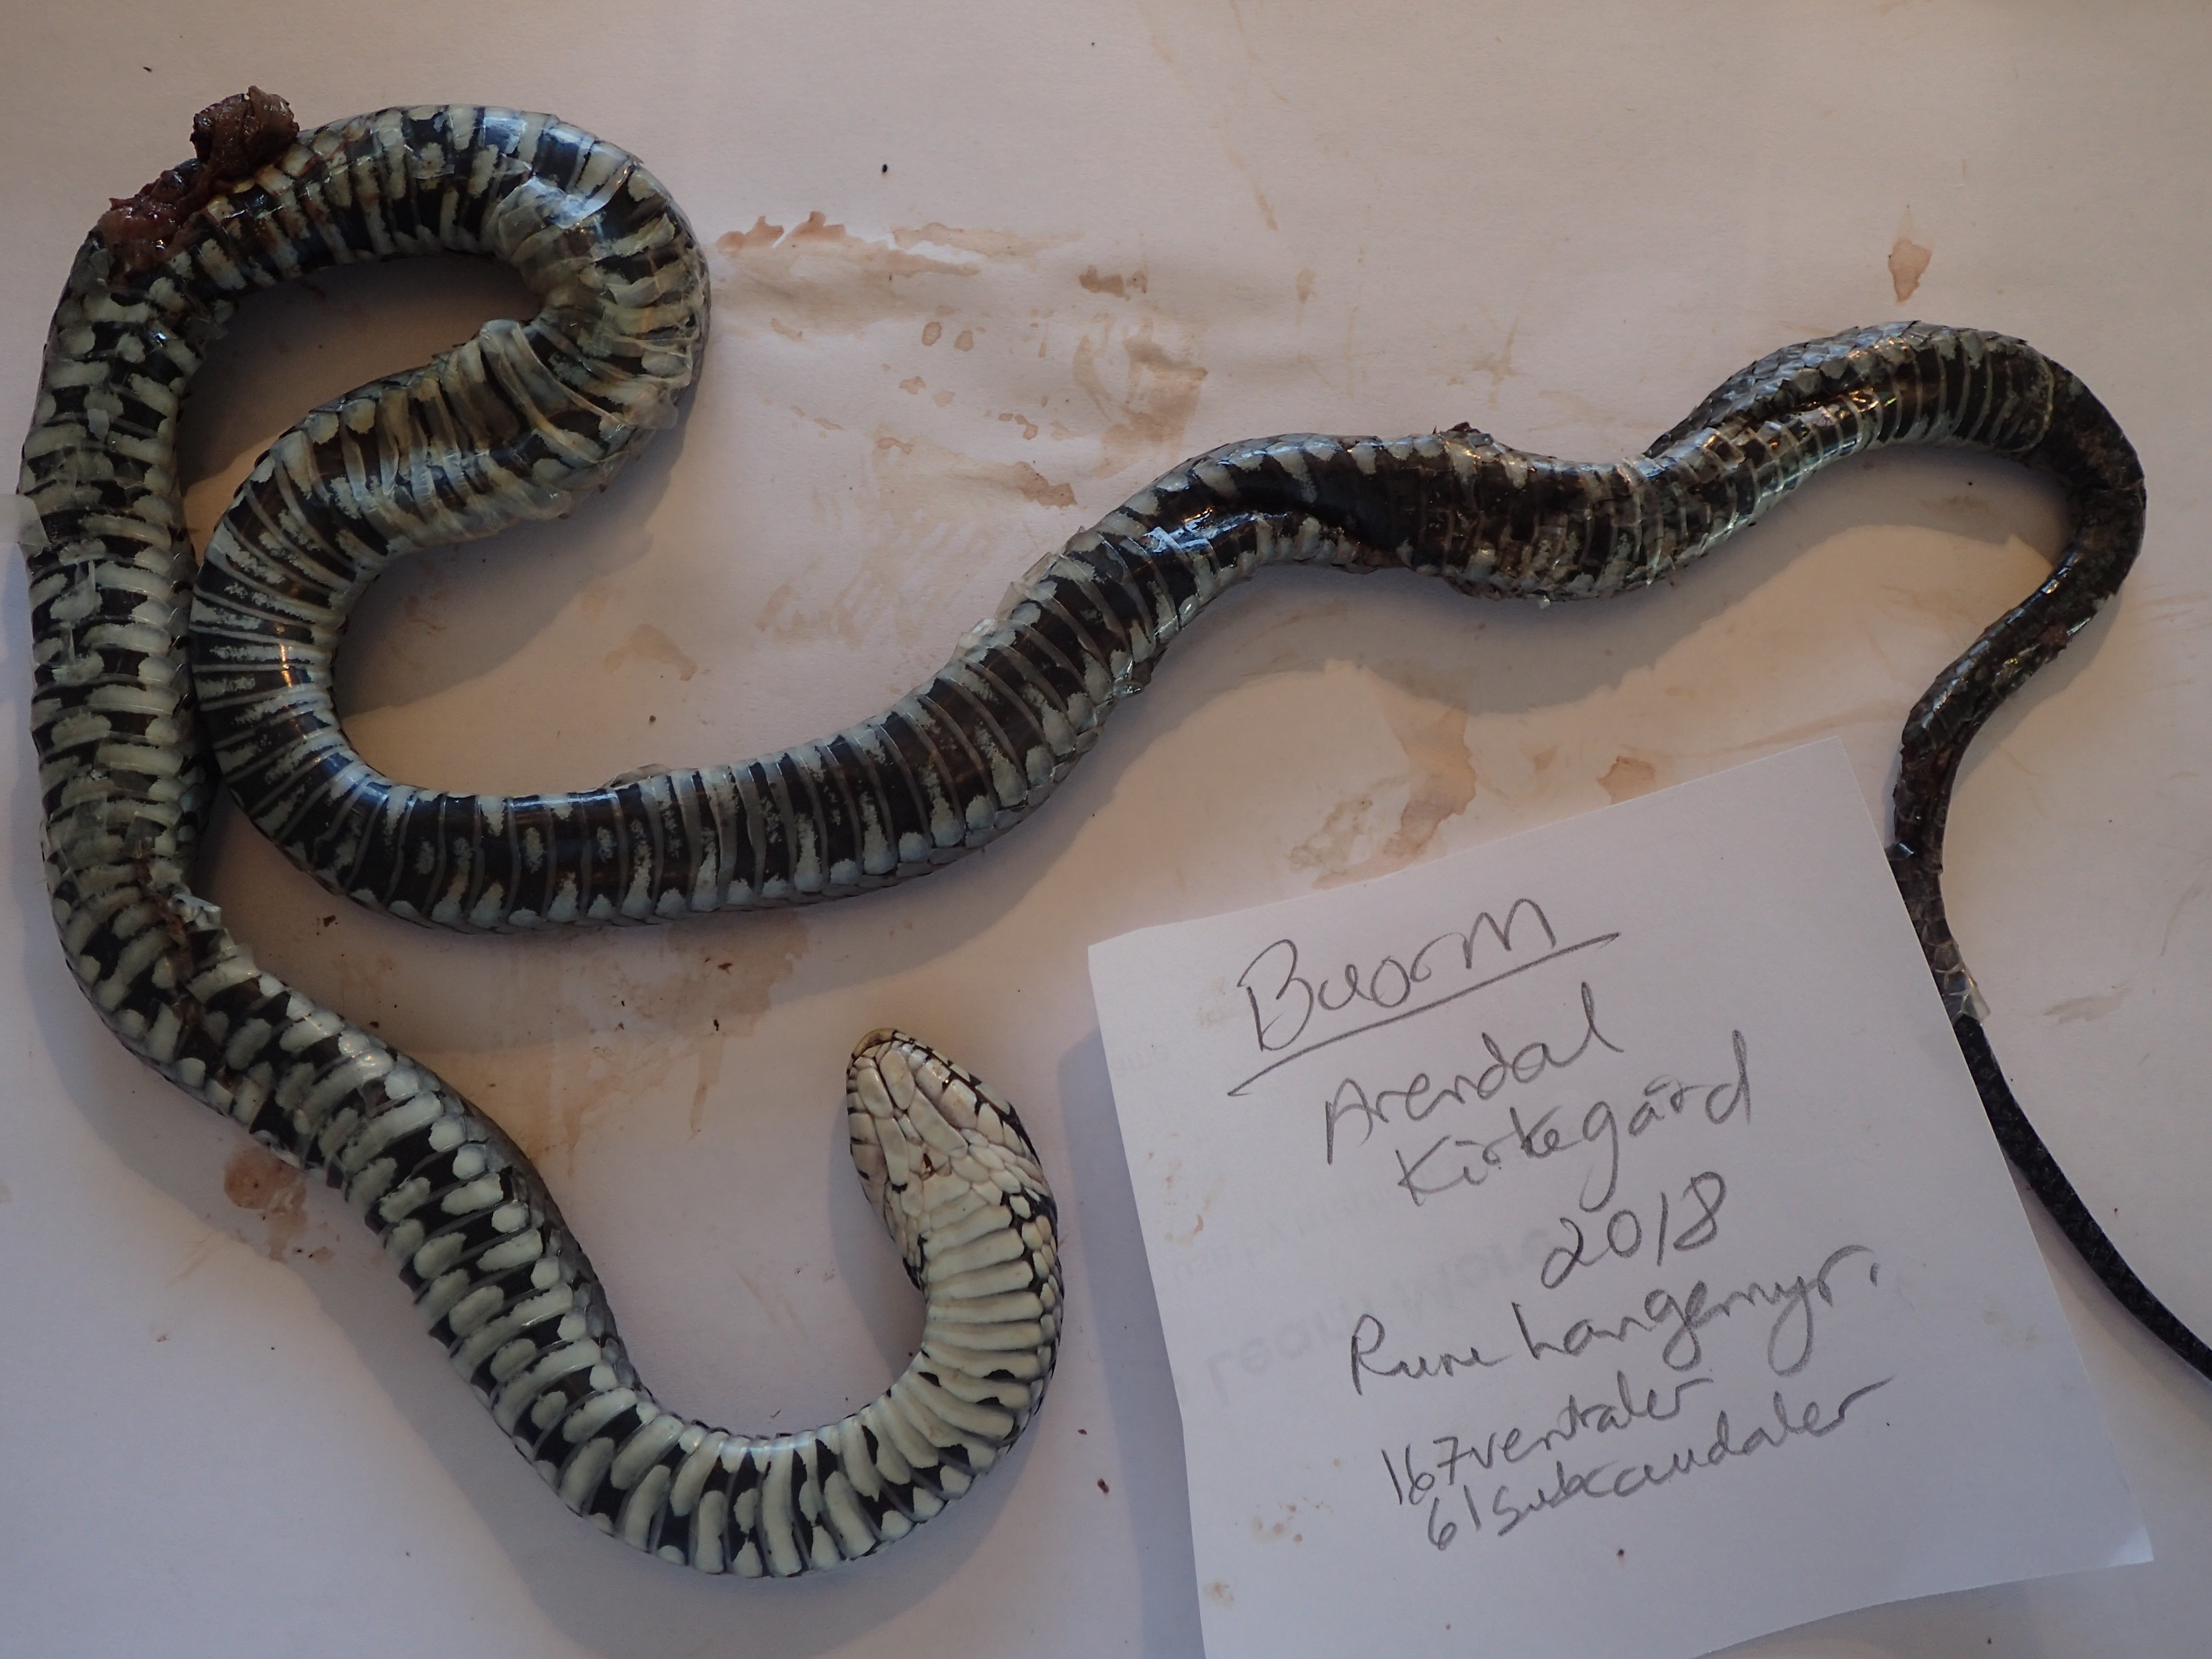 Buorm
Arendal
Kirkegård
2018
Rune Langemyr.
167 ventraler
61 subcaudaler